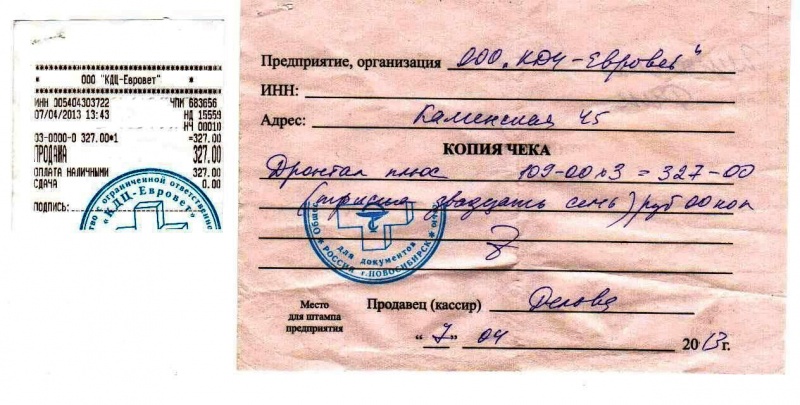 * ООО "КДЦ-Евровет" *
ИНН 005404303722 ЧПМ 683656
07/04/2013 13:43 НД 15559
НЧ 00010
03-0000-0 327.00*1 =327.00
ПРОДАЖА 327.00
ОПЛАТА НАЛИЧНЫМИ 327.00
СДАЧА 0.00
ПОДПИСЬ:
тво с ограниченной ответственно
"КДЦ-Евровет"
Предприятие, организация ООО "КДЦ-Евровет"
ИНН:
Адрес: Каменская 45
КОПИЯ ЧЕКА
Дронтал плюс 109-00 х 3 = 327-00
(триста двадцать семь) руб 00 коп
для документов
РОССИЯ г.НОВОСИБИРСК
Место для штампа предприятия
Продавец (кассир)
"7" 04 2013г.